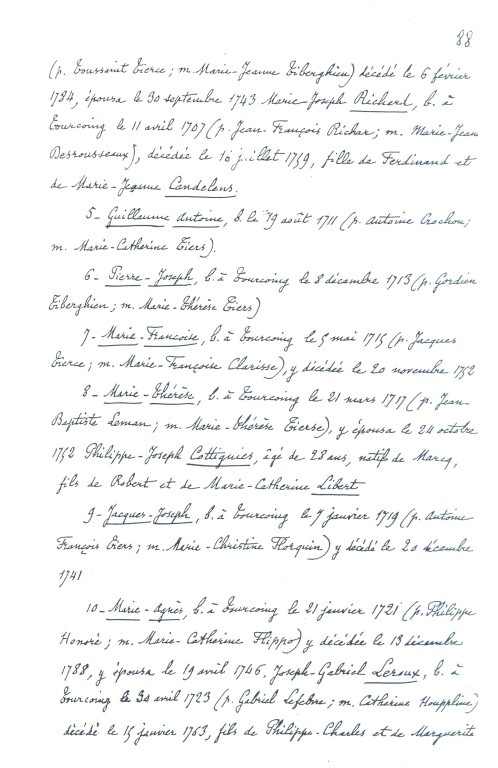 88
(p. Toussaint Tierce ; m. Marie-Jeanne Tiberghien) décédé le 6 février
1794, épousa le 30 septembre 1743 Marie-Joseph Richard, b. à
Tourcoing le 11 avril 1707 (p. Jean-François Richar ; m. Marie-Jean
Desrousseaux), décédée le 16 juillet 1759, fille de Ferdinand et
de Marie-Jeanne Candelens.
5- Guillaume Antoine, b. le 19 août 1711 (p. Antoine Crochon ;
m. Marie-Catherine Tiers).
6- Pierre-Joseph, b. à Tourcoing le 8 décembre 1713 (p. Gordien
Tiberghien ; m. Marie-Thérèse Tiers)
7- Marie-Françoise, b. à Tourcoing le 5 mai 1715 (p. Jacques
Tierce ; m. Marie-Françoise Clarisse), y décédée le 20 novembre 1752
8- Marie-Thérèse, b. à Tourcoing le 21 mars 1717 (p. Jean-
Baptiste Leman ; m. Marie-Thérèse Tierse), y épousa le 24 octobre
1752 Philippe-Joseph Cottignies, âgé de 28 ans, natif de Marcq,
fils de Robert et de Marie-Catherine Libert
9- Jacques-Joseph, b. à Tourcoing le 7 janvier 1719 (p. Antoine
François Tiers ; m. Marie-Christine Florquin) y décédé le 20 décembre
1741
10- Marie-Agnès, b. à Tourcoing le 21 janvier 1721 (p. Philippe
Honoré ; m. Marie-Catherine Flippo) y décédée le 13 décembre
1788, y épousa le 19 avril 1746, Joseph-Gabriel Leroux, b. à
Tourcoing le 30 avril 1723 (p. Gabriel Lefebvre ; m. Catherine Houppline)
décédé le 15 janvier 1763, fils de Philippe-Charles et de Marguerite